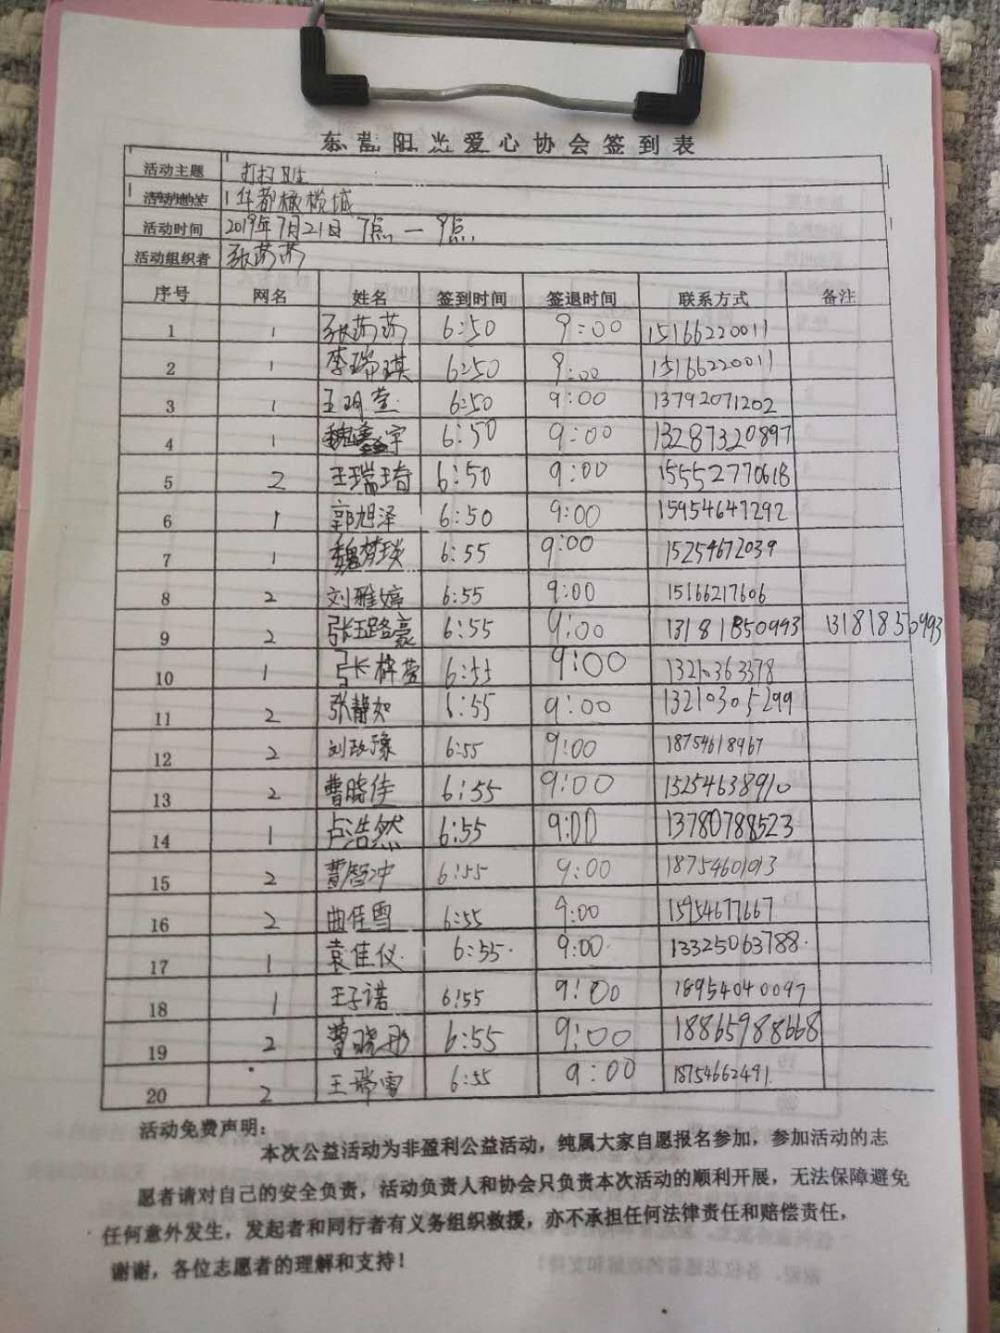 东营阳光爱心协会签到表
活动主题 打扫卫生
活动地点 华都橄榄城
活动时间 2019年7月21日 7点—9点
活动组织者 张芮芮
序号 网名 姓名 签到时间 签退时间 联系方式 备注
1 1 张芮芮 6:50 9:00 15166220011
2 1 李瑞琪 6:50 9:00 15166220011
3 1 王玥萱 6:50 9:00 13792071202
4 1 魏鑫宇 6:50 9:00 13287320897
5 2 王瑞琦 6:50 9:00 15552770618
6 1 郭旭泽 6:50 9:00 15954647292
7 1 魏梦琰 6:55 9:00 15254672039
8 2 刘雅婷 6:55 9:00 15166217606
9 2 张珏路豪 6:55 9:00 13181850993 13181850993
10 1 张梓萱 6:55 9:00
11 2 张静如 6:55 9:00 13210305299
12 2 刘政豫 6:55 9:00 18754618967
13 2 曹晓佳 6:55 9:00 15254638910
14 1 卢浩然 6:55 9:00 13780788523
15 2 曹智冲 6:55 9:00 18754601013
16 2 曲佳雪 6:55 9:00 15954677667
17 1 袁佳仪 6:55 9:00 13325063788
18 1 王子诺 6:55 9:00 18954040097
19 2 曹晓彤 6:55 9:00 18865988668
20 2 王瑞雪 6:55 9:00 18754662491
活动免费声明：
本次公益活动为非盈利公益活动，纯属大家自愿报名参加，参加活动的志
愿者请对自己的安全负责，活动负责人和协会只负责本次活动的顺利开展，无法保障避免
任何意外发生，发起者和同行者有义务组织救援，亦不承担任何法律责任和赔偿责任，
谢谢，各位志愿者的理解和支持！